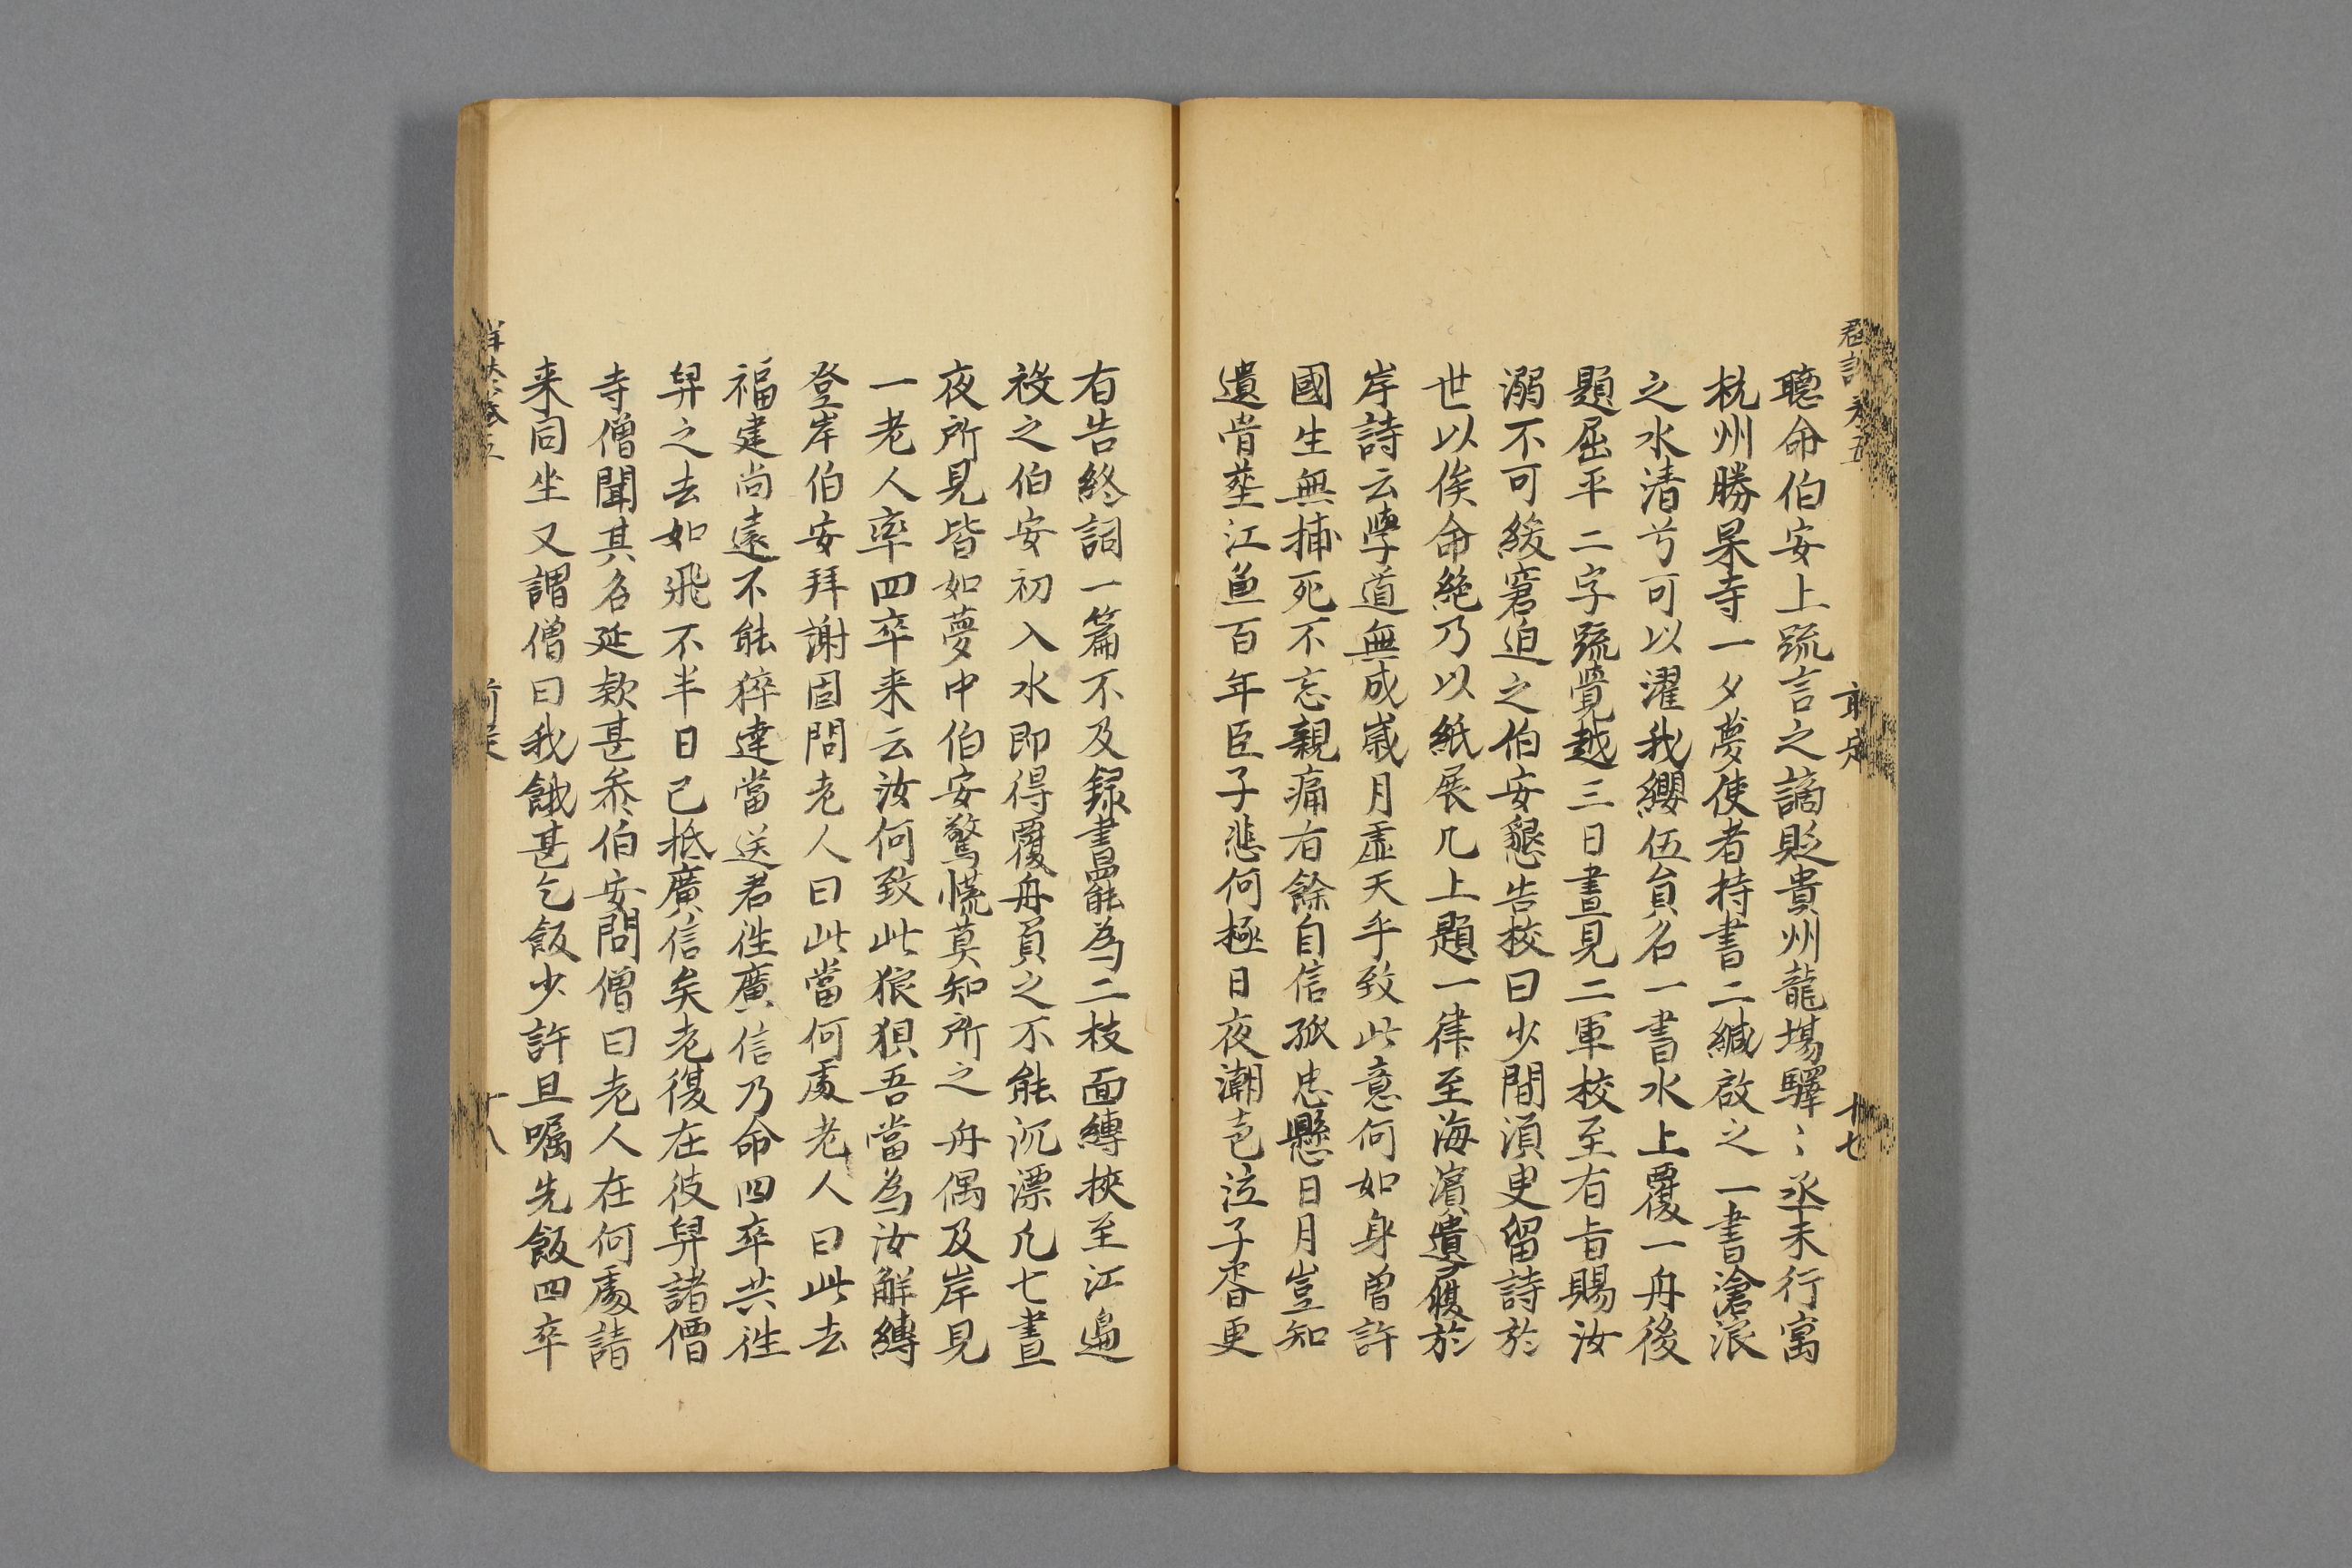 聽命伯安上疏言之謫貶貴州龍場驛〻丞未行寓
杭州勝果寺一夕夢使者持書二緘啟之一書滄浪
之水清兮可以濯我纓伍員名一書水上覆一舟後
題屈平二字疏覺越三日晝見二軍校至有旨賜汝
溺不可緩窘迫之伯安懇告校曰少間湏臾留詩於
世以俟命絕乃以紙展几上題一律至海濵遺履於
岸詩云學道無成嵗月虛天乎致此意何如身曾許
國生無捕死不忘親痛有餘自信孤忠懸日月豈知
遺骨塟江魚百年臣子悲何極日夜潮聲泣子胥更
有告終詞一篇不及録書罷為二校面縛挾至江邉
投之伯安初入水即得覆舟負之不能沉漂凢七晝
夜所見皆如夢中伯安驚慌莫知所之舟偶及岸見
一老人率四卒来云汝何致此狼狽吾當為汝解縛
登岸伯安拜謝固問老人曰此當何處老人曰此去
福建尚遠不能猝達當送君徃廣信乃命四卒共徃
舁之去如飛不半日已抵廣信矣老復在彼舁諸僧
寺僧聞其名延欵甚恭伯安問僧曰老人在何處請
来同坐又謂僧曰我餓甚乞飯少許且嘱先飯四卒
卷五
十八